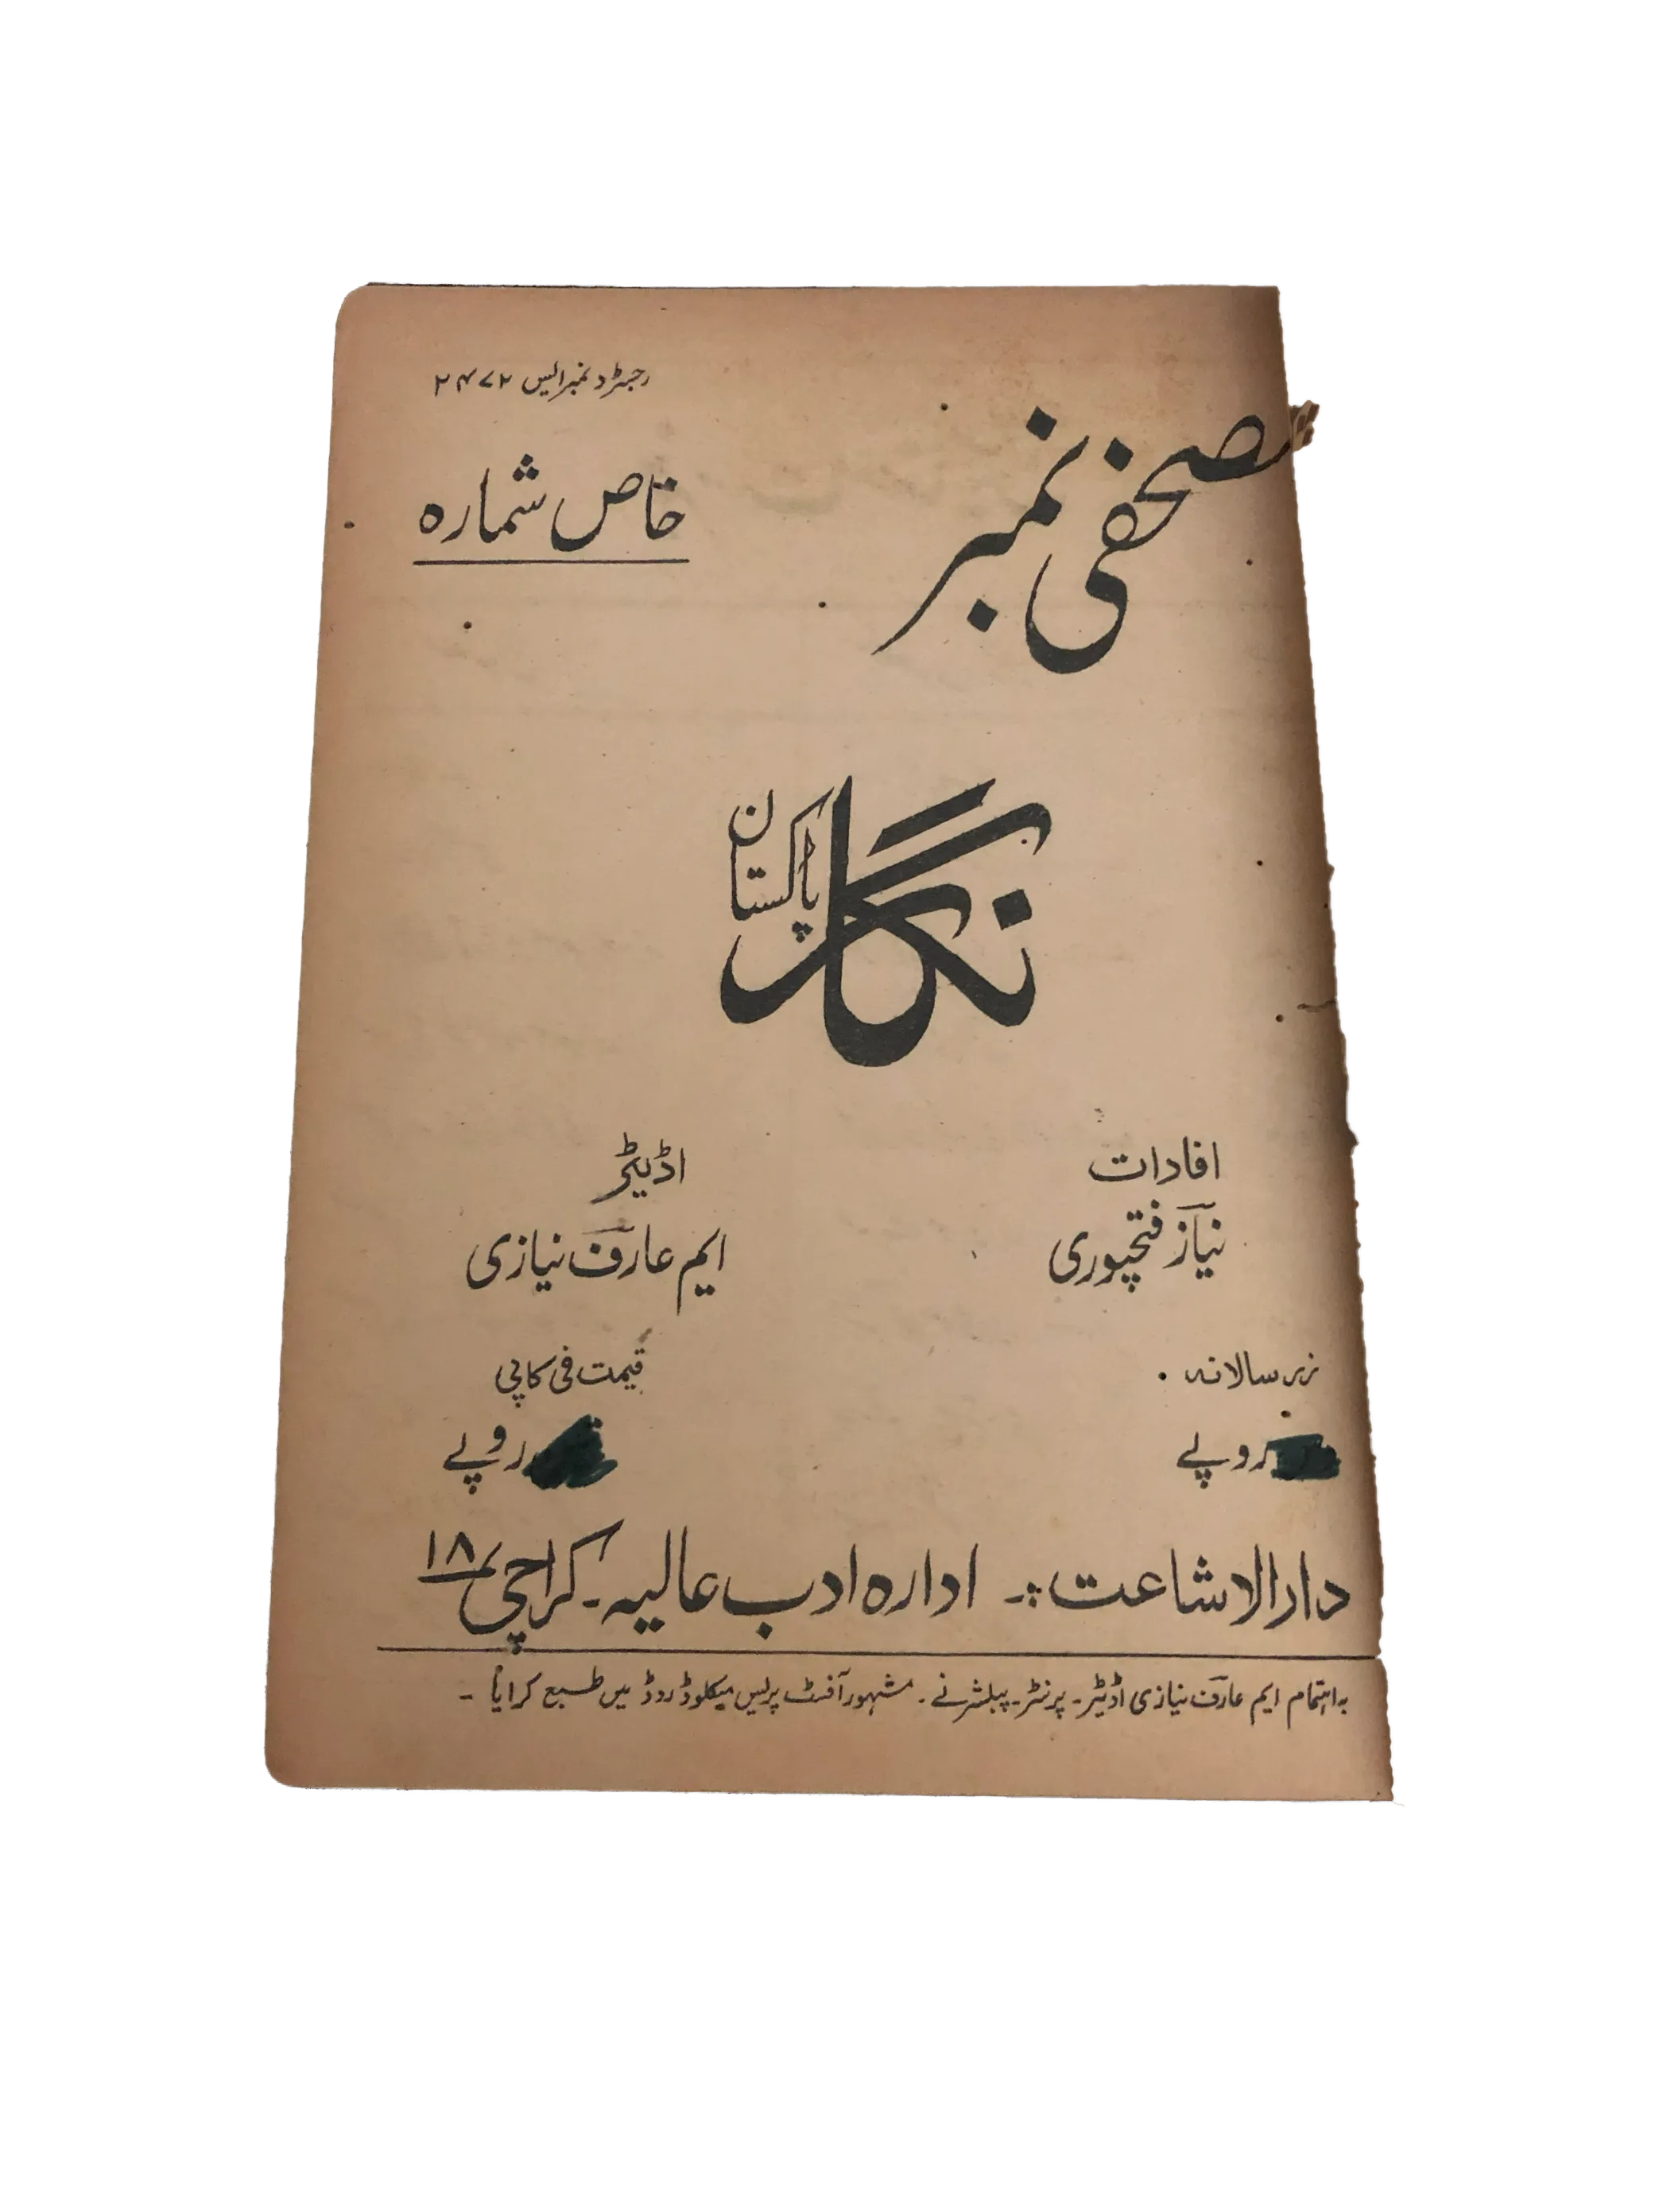 رجسٹرڈ نمبر ایس ۲۴۷۲
مصحفی نمبر
خاص شمارہ
نگار پاکستان
افادات
اڈیٹر
نیاز فتحپوری
ایم عارف نیازی
زر سالانہ
قیمت فی کاپی
روپے
روپے
دارالاشاعت :۔ ادارہ ادب عالیہ ۔ کراچی ۱۸
بہ اہتمام ایم عارف نیازی اڈیٹر ۔ پرنٹر ۔ پبلشر نے ۔ مشہور آفسٹ پریس میکلوڈ روڈ میں طبع کرایا ۔